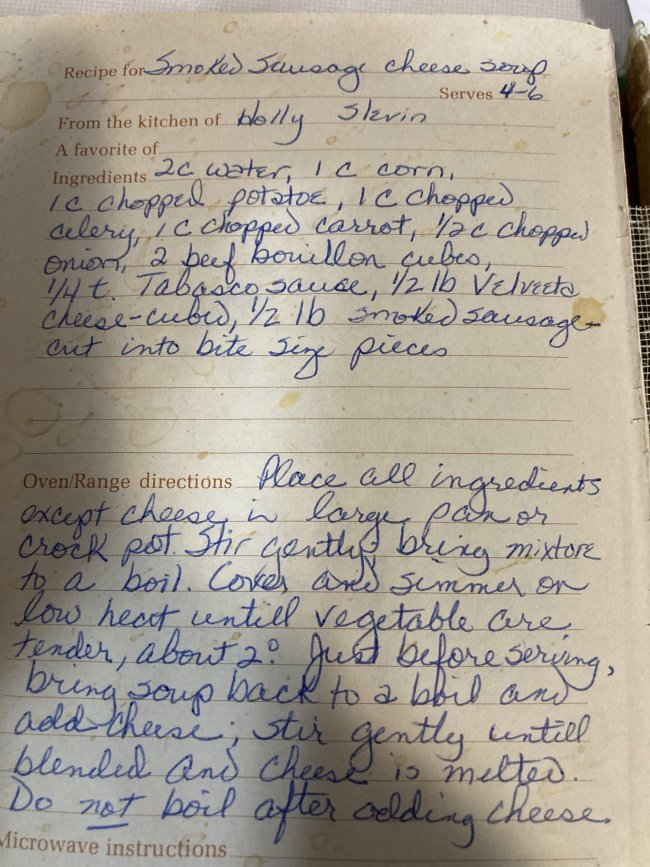 Recipe for Smoked Sausage cheese soup
Serves 4-6
From the kitchen of Holly Slevin
A favorite of
Ingredients 2c water, 1 c corn,
1c chopped potatoe, 1c chopped
celery, 1c chopped carrot, 1/2c chopped
onion, 2 beef bouillon cubes,
1/4 t. Tabasco sauce, 1/2 lb Velveeta
cheese-cubed, 1/2 lb smoked sausage-
cut into bite size pieces
Oven/Range directions Place all ingredients
except cheese in large pan or
crock pot. Stir gently bring mixtore
to a boil. Cover and simmer on
low heat untill vegetable are
tender, about 2°. Just before serving,
bring soup back to a boil and
add cheese; stir gently untill
blended and cheese is melted.
Do not boil after adding cheese.
Microwave instructions